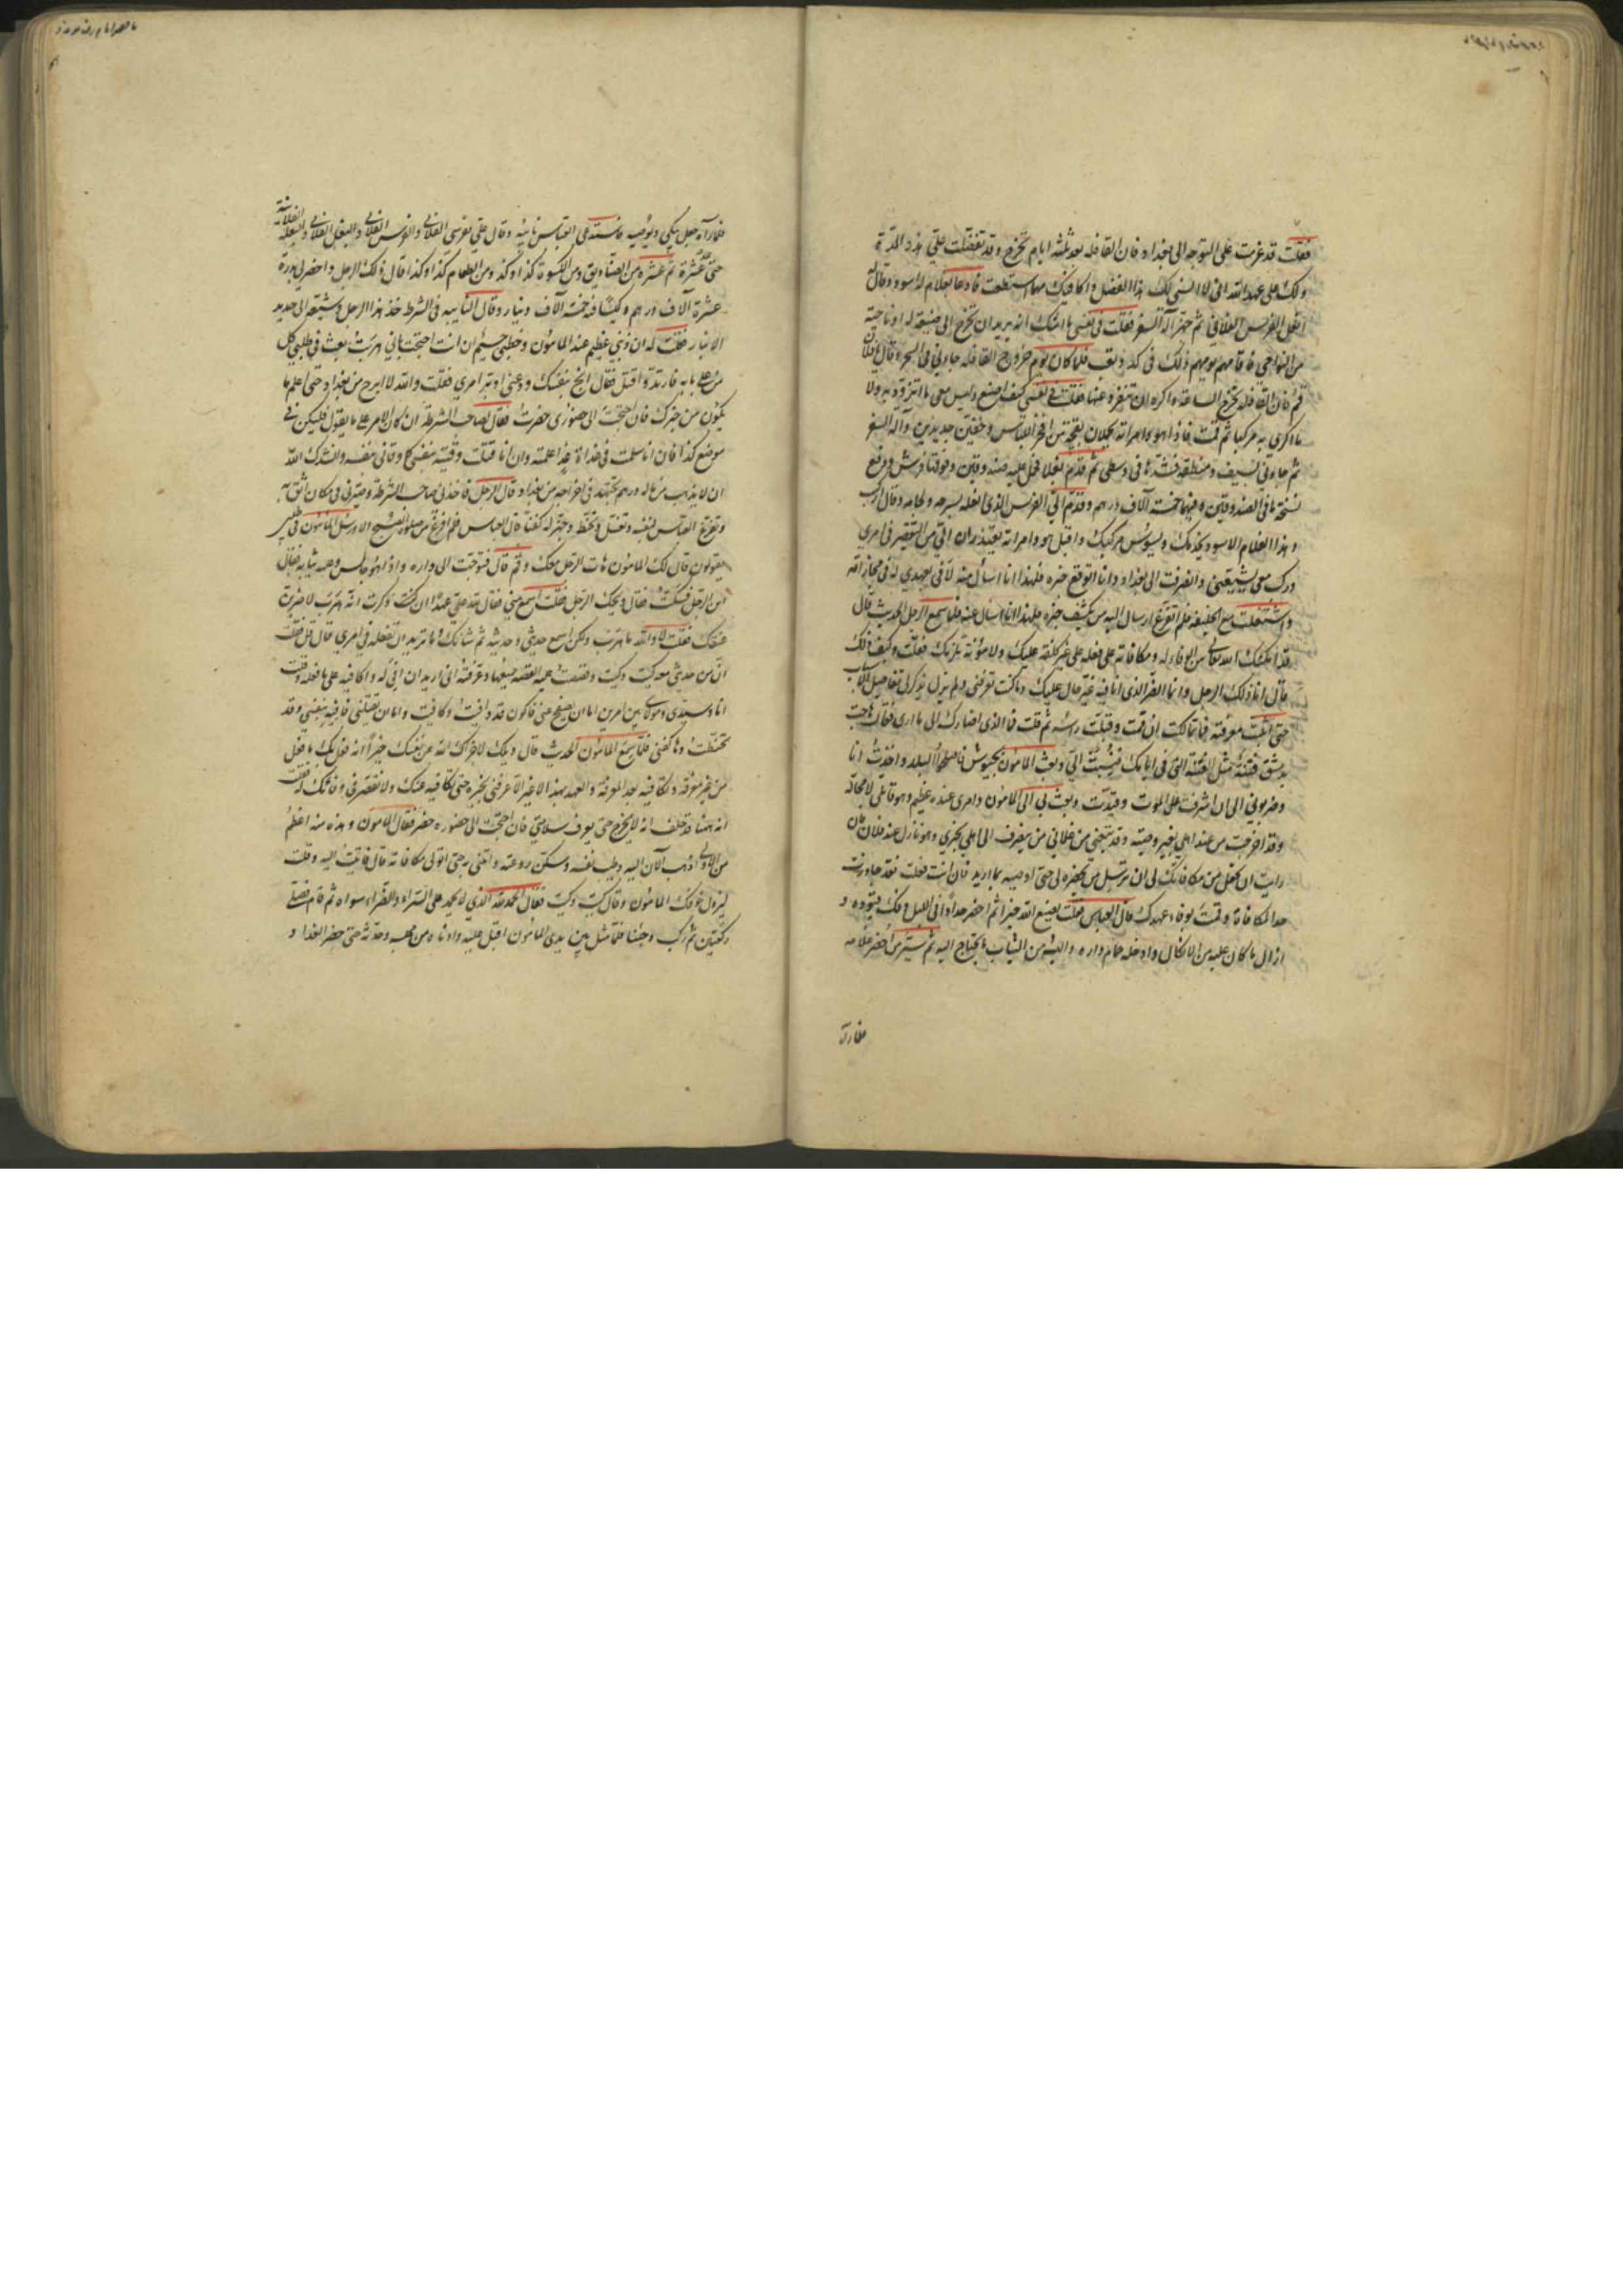 فقلت قد عزمت على التوجه الى بغداد فان القافلة بعد ثلثة ايام تخرج وقد تفضلت علي هذه المدة
ولك علي عهد الله اني لا انسى لك هذا الفضل واكافيك مهما استطعت فدعا بغلام له اسود وقال له
انعل الفرس الفلاني ثم جهز آلة السفر فقلت في نفسي ما اشك انه يريد ان يخرج الى ضيعة له او ناحية
من النواحي فاقاموا يومهم ذلك في كد وتعب فلما كان يوم خروج القافلة جاءني في السحر وقال يا فلان
قم فان القافلة تخرج الساعة واكره ان تنفرد عنها فقلت في نفسي كيف اصنع وليس معي ما اتزود به ولا
ما اكري به مركبا ثم قمت فاذا هو وامراته يحملان بقجة من افخر اللباس وخفين جديدين وآلة السفر
ثم جاءني بسيف ومنطقة فشدها في وسطي ثم قدم بغلا فحمل عليه صندوقين وفوقها فرش ودفع
نسخة ما في الصندوقين وفيهما خمسة آلاف درهم وقدم الي الفرس الذي انعله بسرجه ولجامه وقال اركب
وهذا الغلام الاسود يخدمك ويسوس مركبك واقبل هو وامراته يعتذران الي من التقصير في امري
وركب معي يشيعني وانصرفت الى بغداد وانا اتوقع خبره لافي بعهدي له في مجازاته
واشتغلت مع الخليفة فلم اتفرغ ارسال اليه من يكشف خبره فلهذا انا اسأل عنه فلما سمع الرجل الحديث قال
قد امكنك الله تعالى من الوفاء له ومكافاته على فعله على غير كلفة عليك ولا مؤنة تلزمك فقلت وكيف ذلك
قال انا ذلك الرجل وانما الضر الذي انا فيه غير حال عليك وما كنت تعرفني ولم يزل يذكر لي تفاصيل
حتى اثبت معرفته فما تمالكت ان قمت وقبلت راسه ثم قلت فما الذي اصارك الى ما ارى فقال هاجت
بدمشق فتنة مثل الفتنة التي في ايامك فنسبت الي وبعث المامون بجيوش فاصلحوا البلد واخذت انا
وضربوني الى ان اشرفت على الموت وقيدت وبعث بي الى المامون وامري عنده عظيم وهو قاتلي لا محالة
وقد اخرجت من عند اهلي بغير وصية وقد تبعني من غلماني من ينصرف الى اهلي بخبري وهو نازل عند فلان فان
رايت ان تجعل من مكافاتك لي ان ترسل من يحضره لي حتى اوصيه بما اريد فان انت فعلت فقد جاوزت
حد المكافاة وقمت بوفاء عهدك قال العباس فقلت يصنع الله خيرا ثم احضر حدادا في الليل وفك قيوده و
ازال ما كان عليه من الانكال وادخله حمام داره والبسه من الثياب ما يحتاج اليه ثم سير من احضر غلامه
فلما رآه
فلما رآه جعل يبكي ويوصيه فاستدعى العباس نايبه وقال علي بفرسي الفلاني والفرس الفلاني والبغل الفلاني والبغلة الفلانية
حتى عد عشرة ثم عشرة من الصناديق ومن الكسوة كذا وكذا ومن الطعام كذا وكذا قال ذلك الرجل واحضر لي بدرة
عشرة آلاف درهم وكيسا فيه خمسة آلاف دينار وقال لنايبه في الشرطة خذ هذا الرجل وشيعه الى حد
الانبار فقلت له ان ذنبي عظيم عند المامون وخطبي جسيم ان انت احتججت باني هربت بعث في طلبي كل
من على بابه فارد واقتل فقال انج بنفسك ودعني ادبر امري فقلت والله لا ابرح من بغداد حتى اعلم ما
يكون من خبرك فان احتجت الى حضوري حضرت فقال لصاحب الشرطة ان كان الامر على ما يقول فليكن في
موضع كذا فان انا سلمت في غداة غد اعلمته وان انا قتلت وقيته بنفسي كما وقاني بنفسه وانشدك الله
ان لا يذهب من ماله درهم وتجتهد في اخراجه من بغداد قال الرجل فاخذني صاحب الشرطة وصيرني في مكان اثق به
وتفرغ العباس لنفسه وتغسل وتحنط وجهز له كفنا قال العباس فلم افرغ من صلوة الصبح الا ورسل المامون في طلبي
يقولون قال لك المامون هات الرجل معك وقم قال فتوجهت الى داره واذا هو جالس وعليه ثيابه فقال
اين الرجل فسكت فقال ويحك الرجل فقلت اسمع مني فقال لله علي عهد ان كنت ذكرت انه هرب لاضربن
عنقك فقلت لا والله ما هرب ولكن اسمع حديثي وحديثه ثم شانك وما تريد ان تفعله في امري قال قل فقلت
ان من حديثي معه كيت وكيت وقصصت عليه القصة جميعها وعرفته اني اريد ان افي له واكافيه على ما فعله وقلت
انا وسيدي ومولاي بين امرين اما ان يصفح عني فاكون قد وافيت وكافيت واما ان يقتلني فاقيه بنفسي وقد
تحنطت وها كفني فلما سمع المامون الحديث قال ويلك لا جزاك الله عن نفسك خيرا انه فعل بك ما فعل
من غير معرفة وتكافيه بعد المعرفة والعهد بهذا لا غير الا عرفتني بخبره حتى نكافيه عنك ولا نقصر في وفائك له فقلت
انه ههنا قد حلف انه لا يخرج حتى يعرف سلامتي فان احتجت الى حضوره حضر فقال المامون وهذه منه اعظم
من الاولى اذهب الآن اليه وطيب نفسه وسكن روعته وائتني به حتى اتولى مكافاته قال فاتيت اليه وقلت
ليزول خوفك المامون وقال كيت وكيت فقال الحمد لله الذي لا يحمد على السراء والضراء سواه ثم قام فصلى
ركعتين ثم ركب وجئنا فلما مثل بين يدي المامون اقبل عليه وادناه من مجلسه وحدثه حتى حضر الغداء و